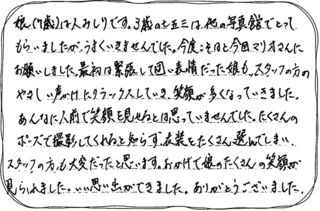 娘(7歳)は人みしりです。3歳の七五三は、他の写真館でとって
もらいましたが、うまくいきませんでした。今度こそはと今回マリオさんに
お願いしました。最初は緊張して固い表情だった娘も、スタッフの方の
やさしい声かけにリラックスしていき、笑顔が多くなっていきました。
あんなに人前で笑顔を見せるとは思っていませんでした。たくさんの
ポーズで撮影してくれると知らず、衣装をたくさん選んでしまい、
スタッフの方も大変だったと思います。おかげで娘のたくさんの笑顔が
見られました。いい思い出ができました。ありがとうございました。